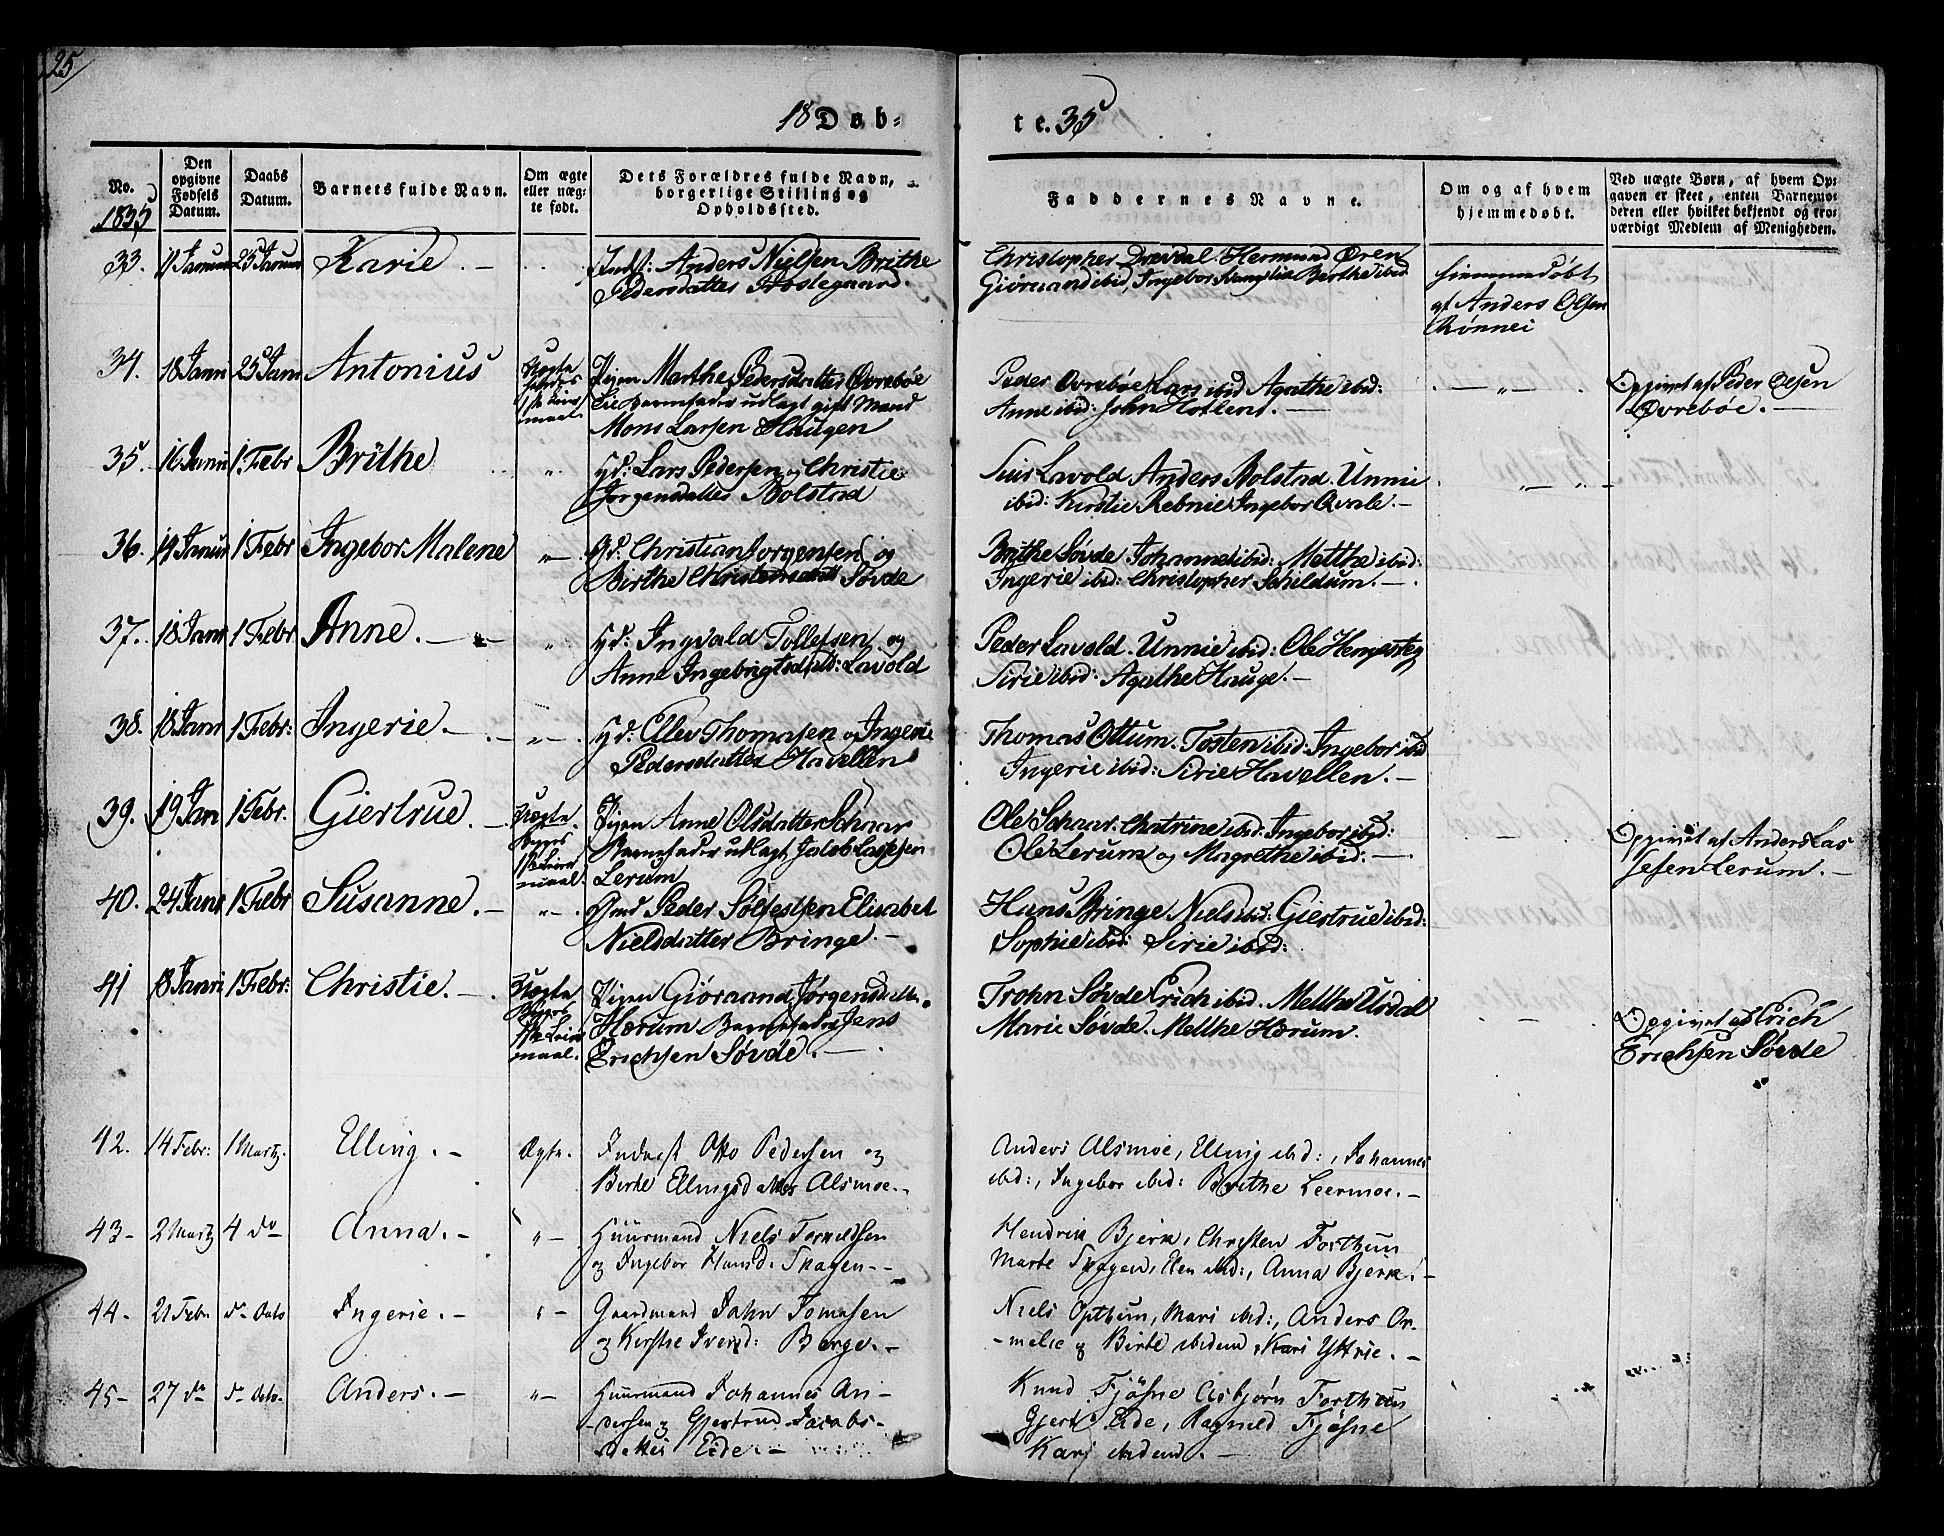 25
18 Døb-
te. 35
No.
1835
Den opgivne Fødsels Datum.
Daabs Datum.
Barnets fulde Navn.
Om ægte eller uæg-te født.
Dets Forældres fulde Navn, borgerlige Stilling og Opholdssted.
Faddernes Navne.
Om og af hvem hjemmedøbt.
Ved uægte Børn, af hvem Op-gaven er skeet, enten Barnemo-deren eller hvilket bekjendt og tro-værdigt Medlem af Menigheden.
33. 11 Januar 25 Januar Karie. —
Inds: Anders Nielsen Brithe
Pedersdatter Prestegaard.
Christopher Drevdal. Hermund Øren
Giøruand ibid, Ingebor Berthe ibid
Hiemmedøbt
af Anders Olsen
Rønnei
34. 18 Janu 25 Janu Antonius
Uægte
Leier
maal
Pigen Marthe Pedersdatter Øvrebøe
til Barnefader udlagt gift Mand
Mons Larsen Haugen
Peder Øvrebøe Lars ibid Agathe ibid:
Anne ibid: John —
Opgivet af Peder Olsen
Øvrebøe. —
35. 16 Janu 1 Febr Brithe
Gd: Lars Pedersen og Christie
Jørgensdatter Bolstad
Siur Lavold Anders Bolstad. Unni
ibid: Kirstie Rebnie Ingebor Qvale. —
36. 19 Januar 1 Febr Ingebor Malene
Gd: Christian Jørgensen og
Birthe Christensdatt Søvde
Brithe Søvde Johanne ibid: Metthe ibid:
Ingerie ibid: Christopher Schildum. —
37. 18 Janr 1 Febr Anne. —
Gd: Ingvald Tollefsen og
Anne Ingebrigtsdatt: Lavold
Peder Lavold. Unnie ibid: Ole
Sirie ibid: Agathe Hauge. —
38. 18 Janr 1 Febr: Ingerie —
Gd: Ellev Thomasen og Ingerie
Pedersdatter Havellen
Thomas Ottum. Tosten ibid: Ingebor ibid
Ingerie ibid: Sirie Havellen. —
39. 19 Jan 1 Febr. Giertrue. —
Uægte.
Leier
maal.
Pigen Anne Olsdatter Schaar
Barnefader udlagt Jacob Lassesen
Lerum
Ole Schaar: Chatrine ibid: Ingebor ibid:
Ole Lerum og Magrethe ibid: —
Opgivet af Anders Las
sesen Lerum. —
40. 24 Janr 1 Febr Susanne. —
Gmd Peder Sølfestsen Elisabet
Nielsdatter Bringe. —
Hans Bringe Niels ibid: Giertrue ibid:
Sophie ibid: Sirie ibid:
41 18 Janri 1 Febr: Christie. —
Uægte
Leier
maal.
Pigen Giøruand Jørgensdatter
Hærum Barnefader Jens
Erichsen Søvde. —
Trohn Søvde Erich ibid. Metthe Urdal
Marie Søvde. Metthe Hærum.
Opgivet af Erich
Erichsen Søvde
42. 14 Febr: 1 Martz. Elling. — Ægte.
Inderst Otto Pedersen og
Birte Ellingsdatter Alsmoe. —
Anders Alsmoe, Elling ibid:, Johannes
ibid:, Ingebor ibid: Brithe Leermoe. —
43 — 2 Martz 4 do — Anna. — " —
Huusmand Niels
og Ingebor Hansd: Skagen. —
Hendrik Bjerk, Christen Forthun
Marte Skagen, Elen ibid:, Anna Bjerk. —
44. 21 Febr do dato Ingerie. — " —
Gaardmand John Tomesen
og Kirstie Iversd: Berge. —
Niels Opthun, Mari ibid:, Anders Or-
-melie og Birte ibidem, Kari Yttrie. —
45 — 27 do do dato Anders. — " —
Huusmand Johannes An-
dersen og Gjertrud Jacobs-
datter Eide —
Knud Fjøsne Asbjørn Forthun
Gjert Eide, Ragnild Fjøsne
Kari ibidem. —